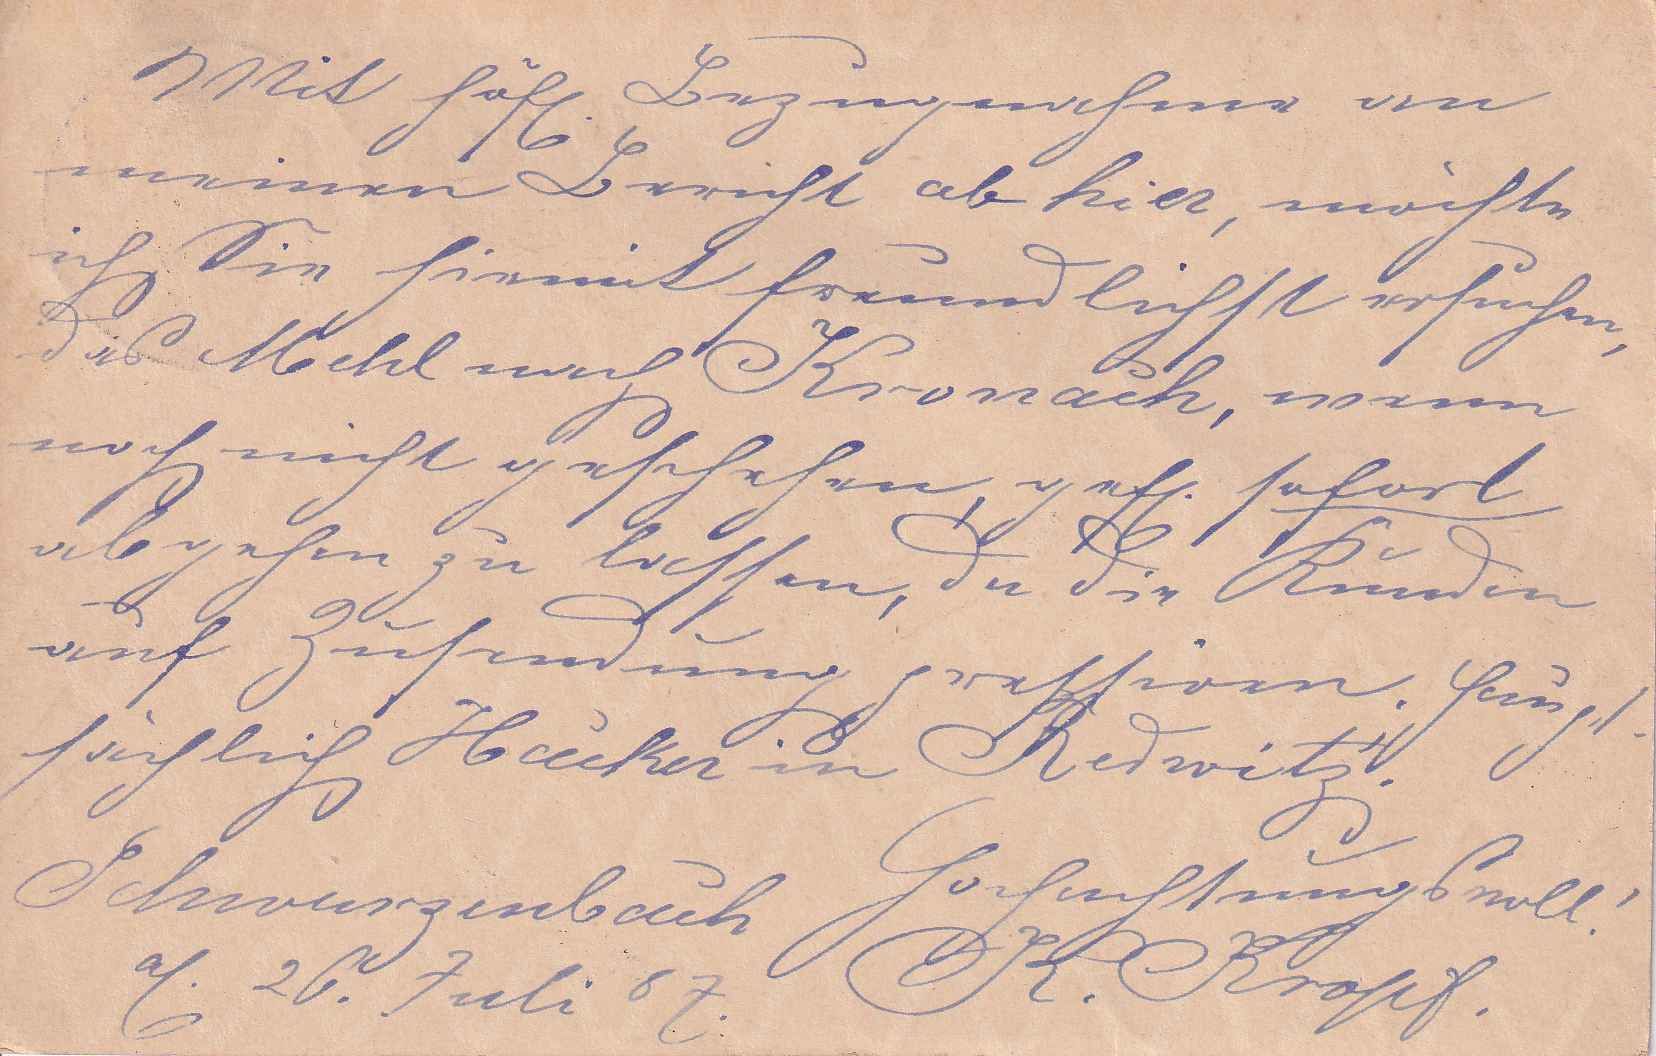 Mit höfl. Bezugnahme an
meinen Bericht ab hier, möchte
ich Sie hiemit freundlichst ersuchen,
das Mehl nach Kronach, wenn
noch nicht geschehen, gefl. sofort
abgehen zu lassen, da die Kunden
auf Zusendung pressiren. Haupt-
sächlich Hacker in Redwitz.
Schwarzenbach Hochachtungsvoll!
a/. 26. Juli 87. K. Kropf.